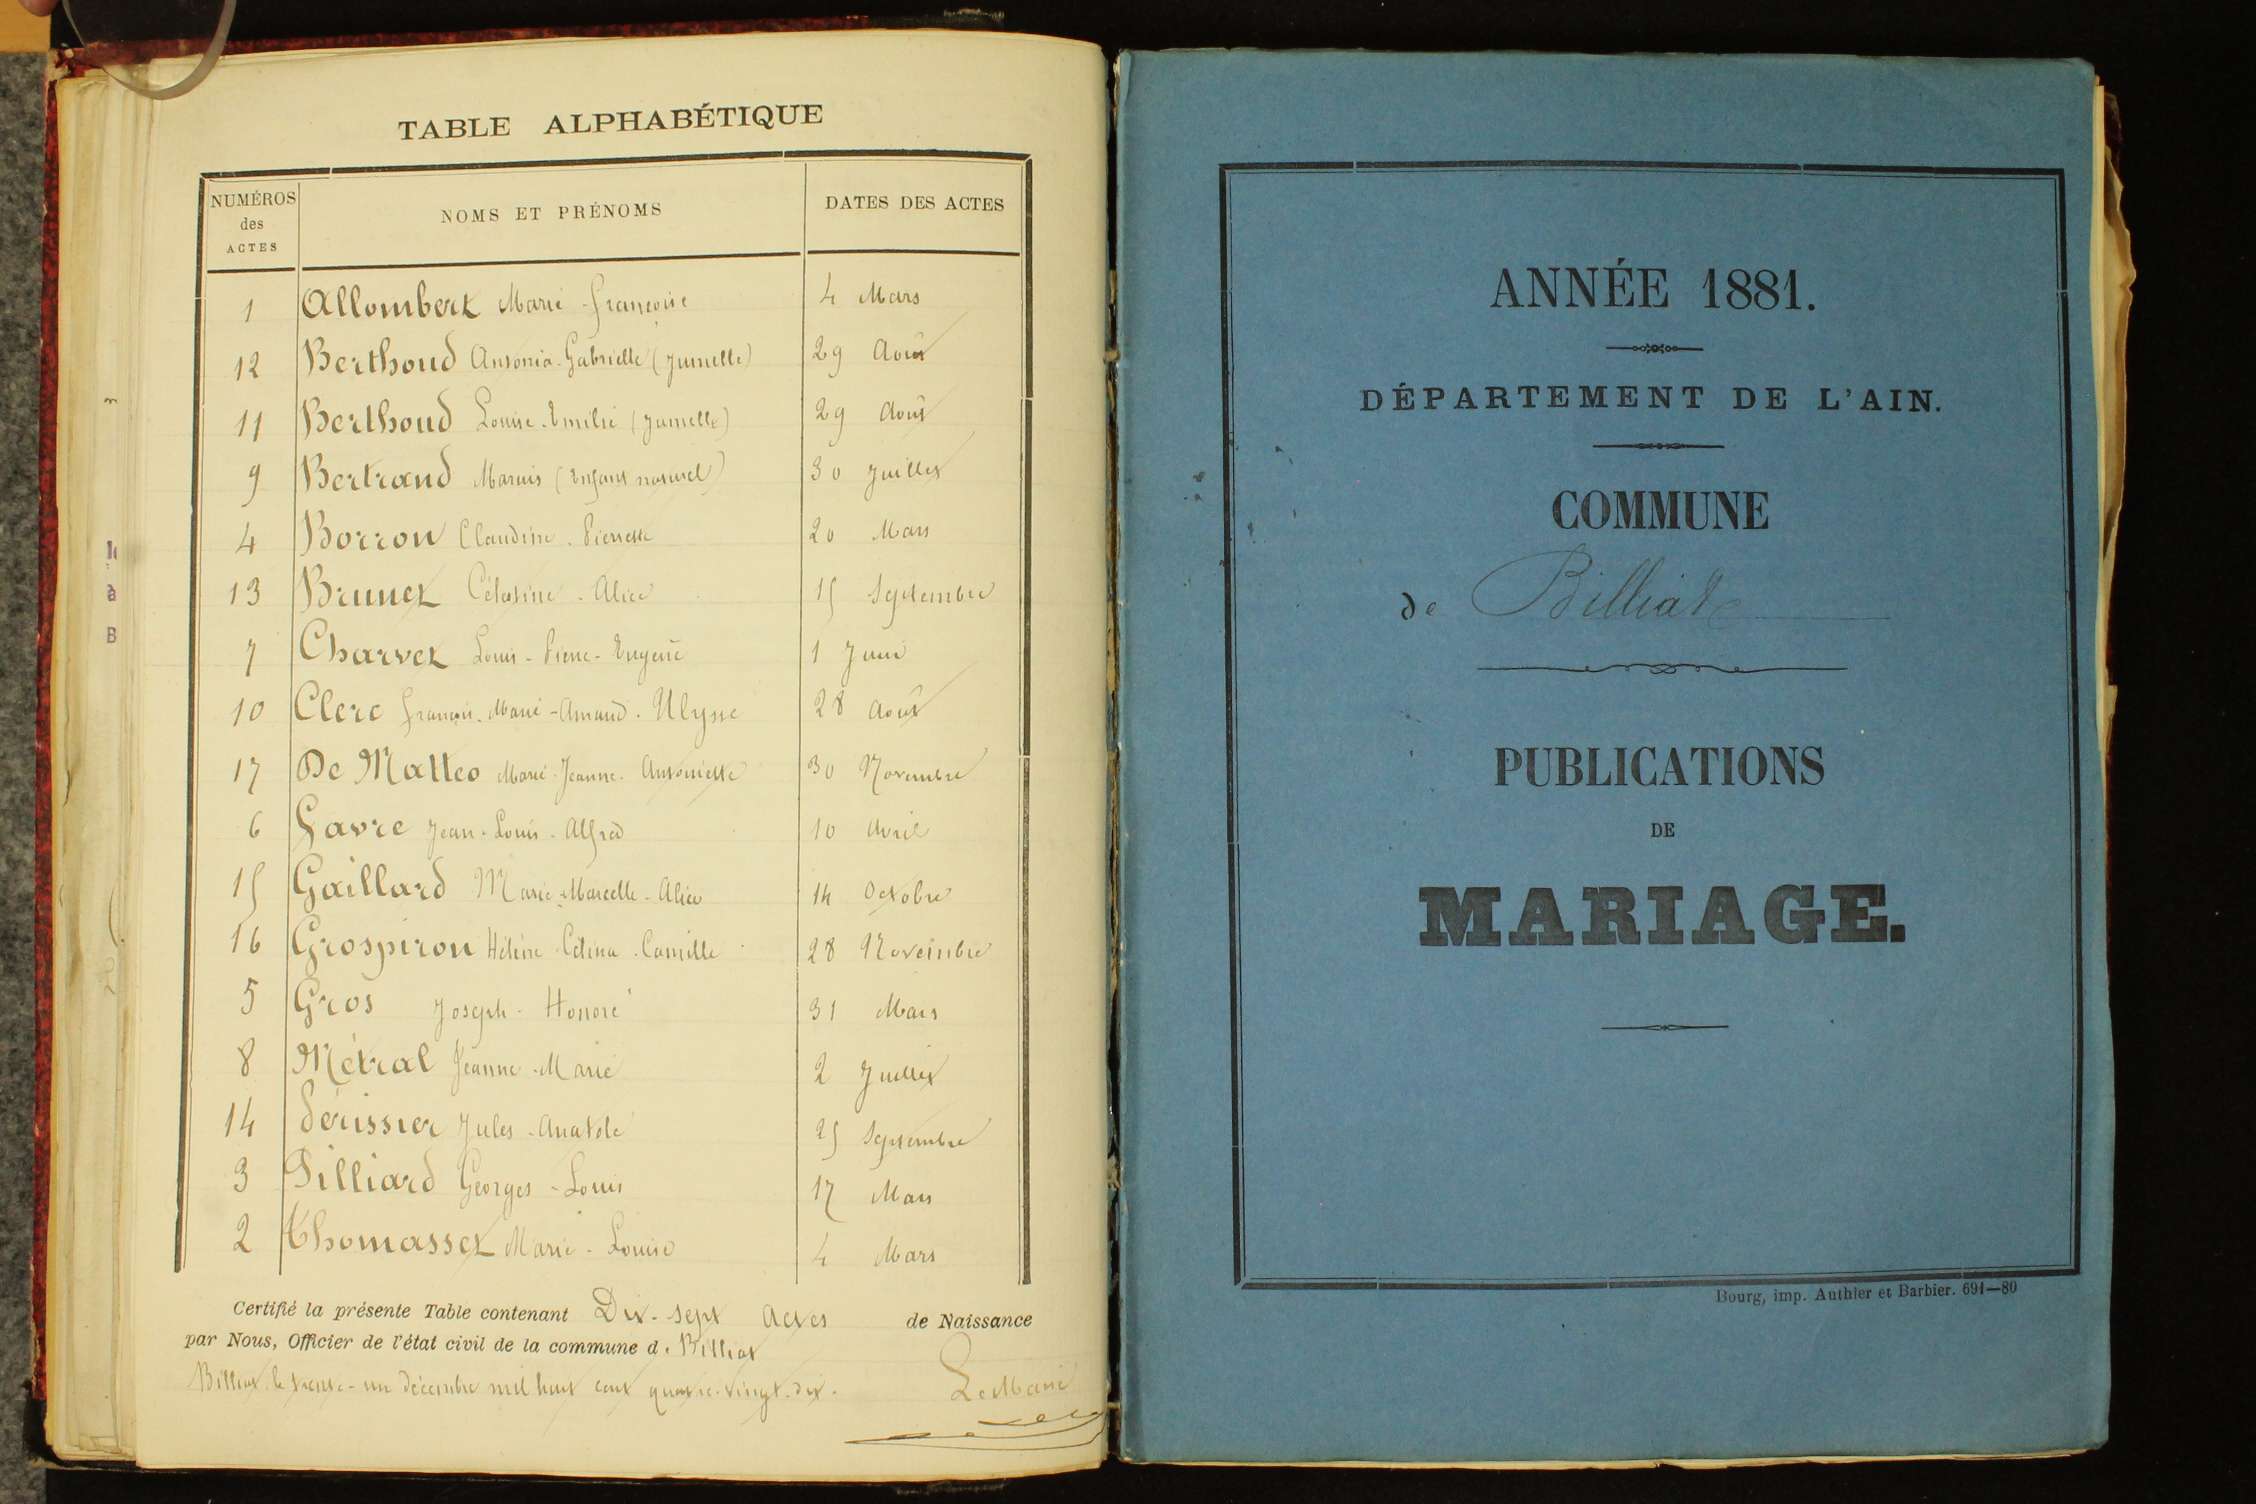 TABLE ALPHABÉTIQUE
NUMÉROS des ACTES
NOMS ET PRÉNOMS
DATES DES ACTES
1 Allombert Marie-Françoise 4 Mars
12 Berthoud Antonia-Gabrielle (Jumelle) 29 Août
11 Berthoud Louise-Emilie (Jumelle) 29 Août
9 Bertrand Marius (Enfant naturel) 30 Juillet
4 Borron Claudine-Pierrette 20 Mars
13 Brunet Célestine-Alice 15 Septembre
7 Charvet Louis-Pierre-Eugène 1 Juin
10 Clerc François-Marie-Armand-Ulysse 28 Août
17 De Matteo Marie-Jeanne-Antoinette 30 Novembre
6 Favre Jean-Louis-Alfred 10 Avril
15 Gaillard Marie-Marcelle-Alice 14 Octobre
16 Grospiron Hélène-Célina-Camille 28 Novembre
5 Gros Joseph-Honoré 31 Mars
8 Métral Jeanne-Marie 2 Juillet
14 Périssier Jules-Anatole 25 Septembre
3 Pilliard Georges-Louis 17 Mars
2 Thomasset Marie-Louise 4 Mars
Certifié la présente Table contenant Dix-sept Actes de Naissance
par Nous, Officier de l'état civil de la commune d. Billiat
Billiat le trente-un décembre mil huit cent quatre-vingt-dix.
Le Maire
ANNÉE 1881.
DÉPARTEMENT DE L'AIN.
COMMUNE
de Billiat
PUBLICATIONS
DE
MARIAGE.
Bourg, imp. Authier et Barbier. 691—80